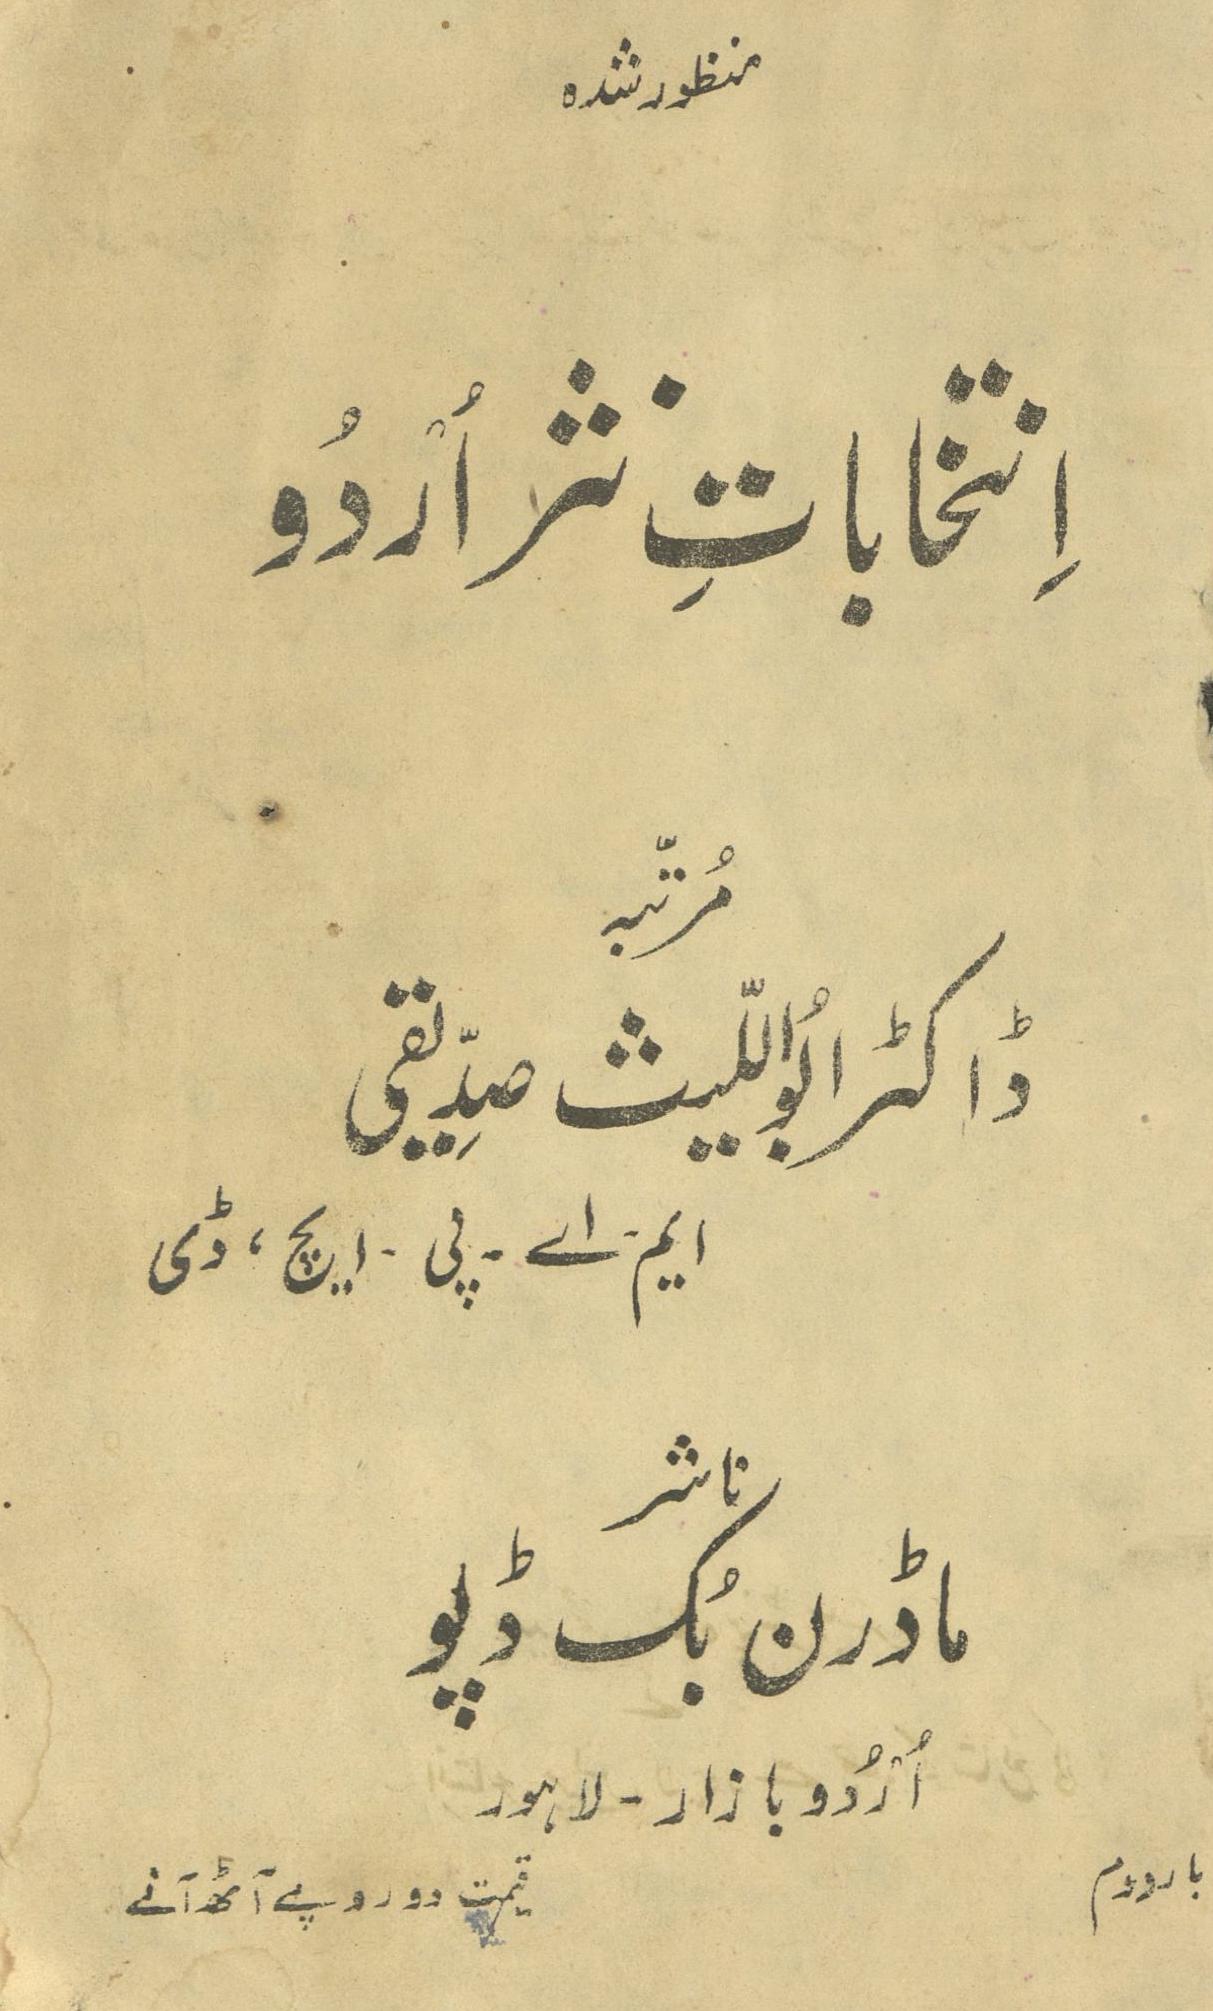 منظور شدہ
اِنتخاباتِ نثر اُرْدُو
مُرتّبہ
ڈاکٹر ابُواللّیث صِدّیقی
ایم - اے - پی - ایچ ، ڈی
ناشر
ماڈرن بُک ڈپو
اُرْدُو بازار - لاہور
بار دوم
قیمت دو روپے آٹھ آنے